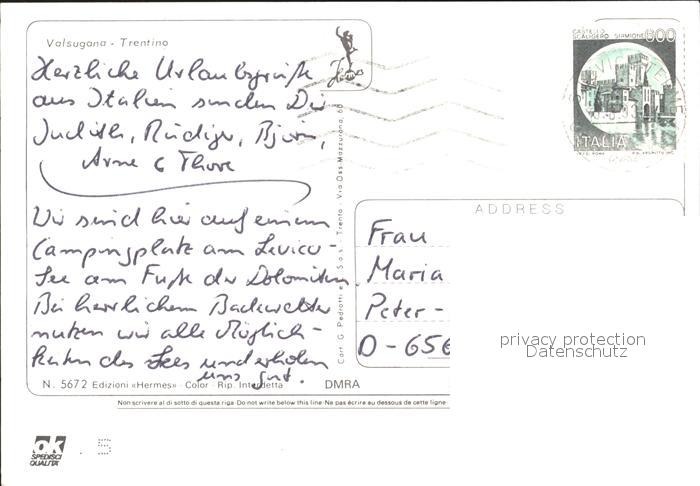 Valsugana - Trentino
Hermes
Herzliche Urlaubsgrüße
aus Italien senden Dir
Judith, Rüdiger, Bjorn,
Arne & Thore
Wir sind hier auf einem
Campingplatz am Levico-
See am Fuße der Dolomiten.
Bei herrlichem Badewetter
nutzen wir alle Möglich-
keiten des Sees und erholen
uns gut.
N. 5672 Edizioni «Hermes» - Color - Rip. Interdetta
DMRA
Cart. G. Pedrotti S.a.s. - Trento - Via Oss Mazzurana, 66
CASTELLO
SCALIGERO SIRMIONE 600
ITALIA
ADDRESS
Frau
Maria
Peter-
D-656
privacy protection
Datenschutz
Non scrivere al di sotto di questa riga - Do not write below this line - Ne pas écrire au dessous de cette ligne
ok
SPEDISCI
QUALITÀ
. 5